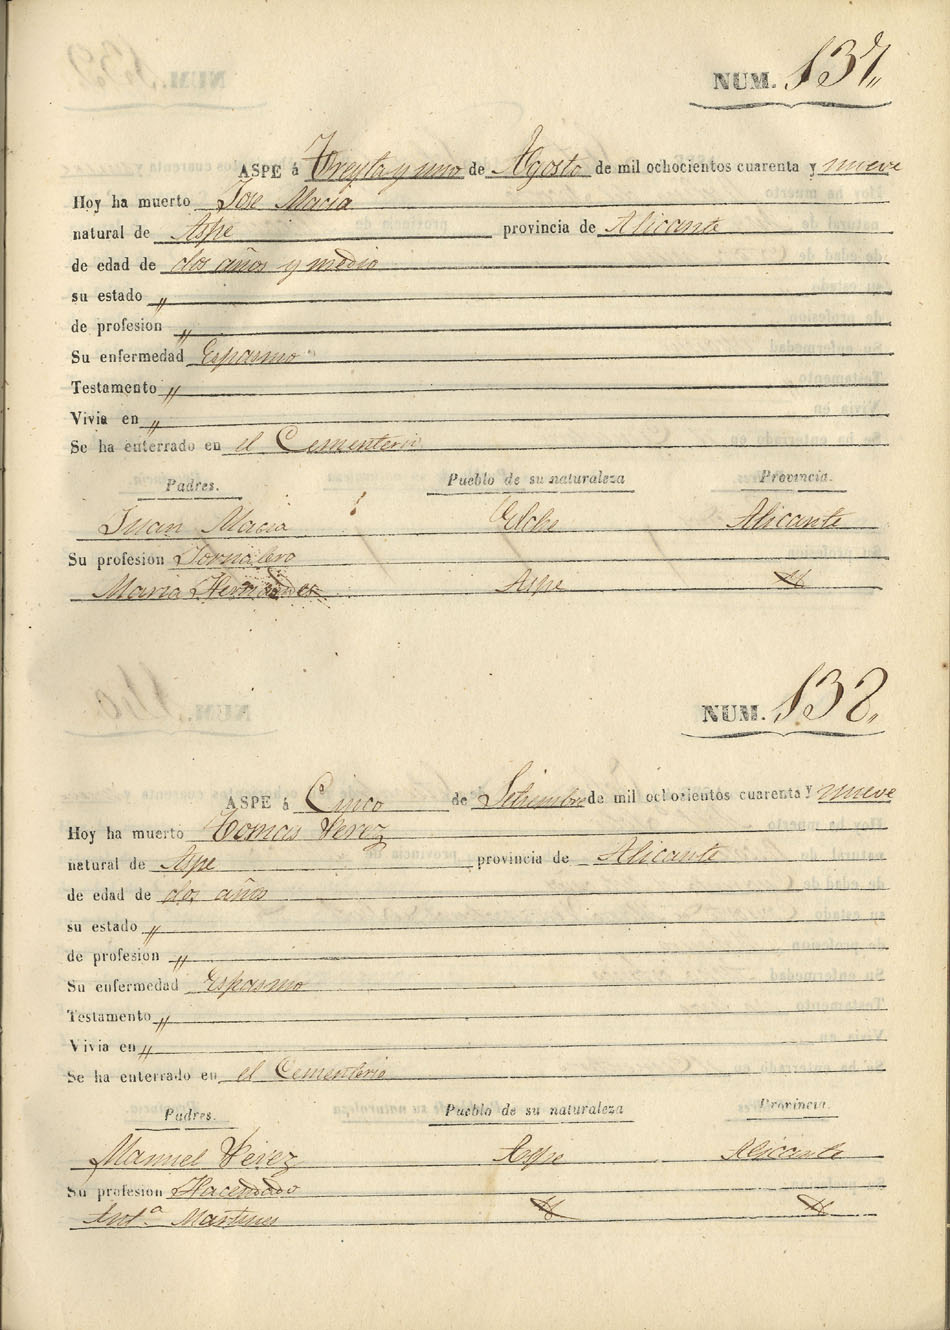 NUM. 137.,
ASPE á Treyta y uno de Agosto de mil ochocientos cuarenta y nueve
Hoy ha muerto Jose Macia
natural de Aspe provincia de Alicante
de edad de dos años y medio
su estado „
de profesion „
Su enfermedad Espasmo
Testamento „
Vivia en „
Se ha enterrado en el Cementerio
Padres. Pueblo de su naturaleza Provincia.
Juan Macia Elche Alicante
Su profesion Jornalero
Maria Hernandez Aspe
NUM. 138.
ASPE á Cinco de Setiembre de mil ochocientos cuarenta y nueve
Hoy ha muerto Tomas Perez
natural de Aspe provincia de Alicante
de edad de dos años
su estado „
de profesion „
Su enfermedad Espasmo
Testamento „
Vivia en „
Se ha enterrado en el Cementerio
Padres. Pueblo de su naturaleza Provincia.
Manuel Perez Aspe Alicante
Su profesion Hacendado
Antª Martines